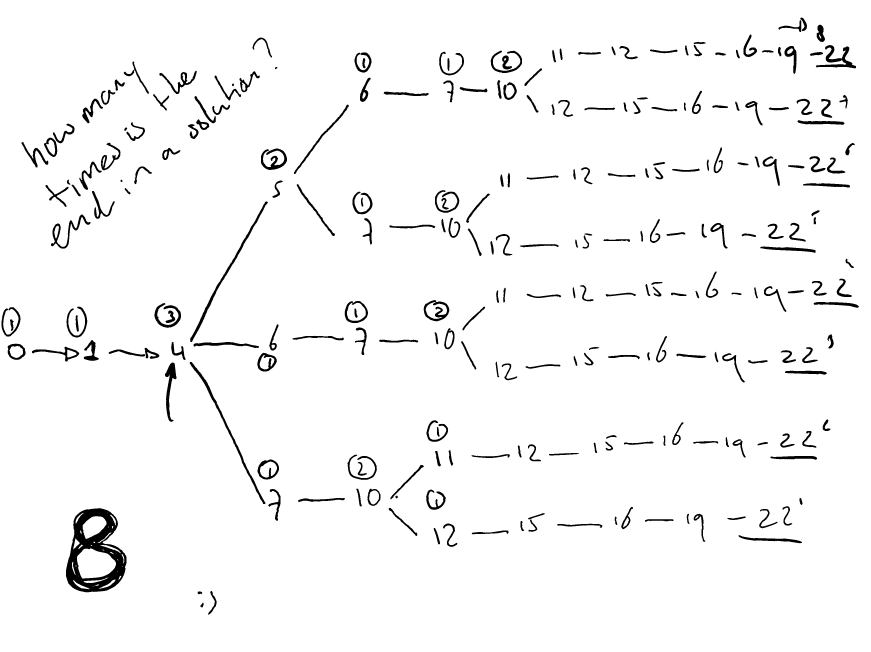 how many
times is the
end in a solution?
① ① ②
6 — 7 — 10 11 — 12 — 15 - 16 - 19 - 22 8
12 — 15 — 16 — 19 — 22 7
②
5
① ②
7 — 10 11 — 12 — 15 — 16 - 19 - 22 6
12 — 15 — 16 — 19 — 22 5
① ① ③
0 → 1 → 4
① ① ②
6 — 7 — 10 11 — 12 — 15 - 16 - 19 - 22
12 — 15 — 16 — 19 — 22 3
① ② ① ①
7 — 10 11 — 12 — 15 — 16 — 19 - 22
12 — 15 — 16 — 19 — 22 1
8
:)